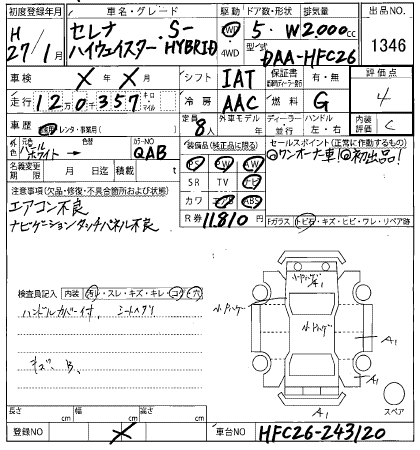 初度登録年月 車名・グレード 駆動 ドア数・形状 排気量 出品NO.
H 27/1月 セレナ ハイウェイスター S-HYBRID 2WD ・4WD 5・W 2000cc 1346
型式 DAA-HFC26
車検 X年X月 シフト IAT 保証書 有・無 評価点 4
走行 120千357 キロ・マイル 冷房 AAC 燃料 G 内装評価 C
車歴 自家 レンタ・事業用( ) 定員 8人 外車モデル 年 ディーラー・並行 ハンドル 左・右
外色 元色 パールホワイト → 色替 カラーNO QAB
装備品(純正品に限る) セールスポイント(正常に作動するもの)
PS PW AW ◎ワンオーナー車!◎初出品!
名義変更期限 月 日 積載 t SR TV ナビ
注意事項(欠品・修復・不具合箇所および状態) カワ エアB ABS
エアコン不良 R券 11810円
ナビゲーションタッチパネル不良 Fガラス トビ石・キズ・ヒビ・ワレ・リペア跡
検査員記入 内装 汚レ・スレ・キズ・キレ・コゲ・穴
ハンドルカバー付, シートヘタリ
キズ、B、
小デントバゲー
A1
A1
A1
スペア
長さ cm 幅 cm 高さ cm
登録NO X 車台NO HFC26-243120